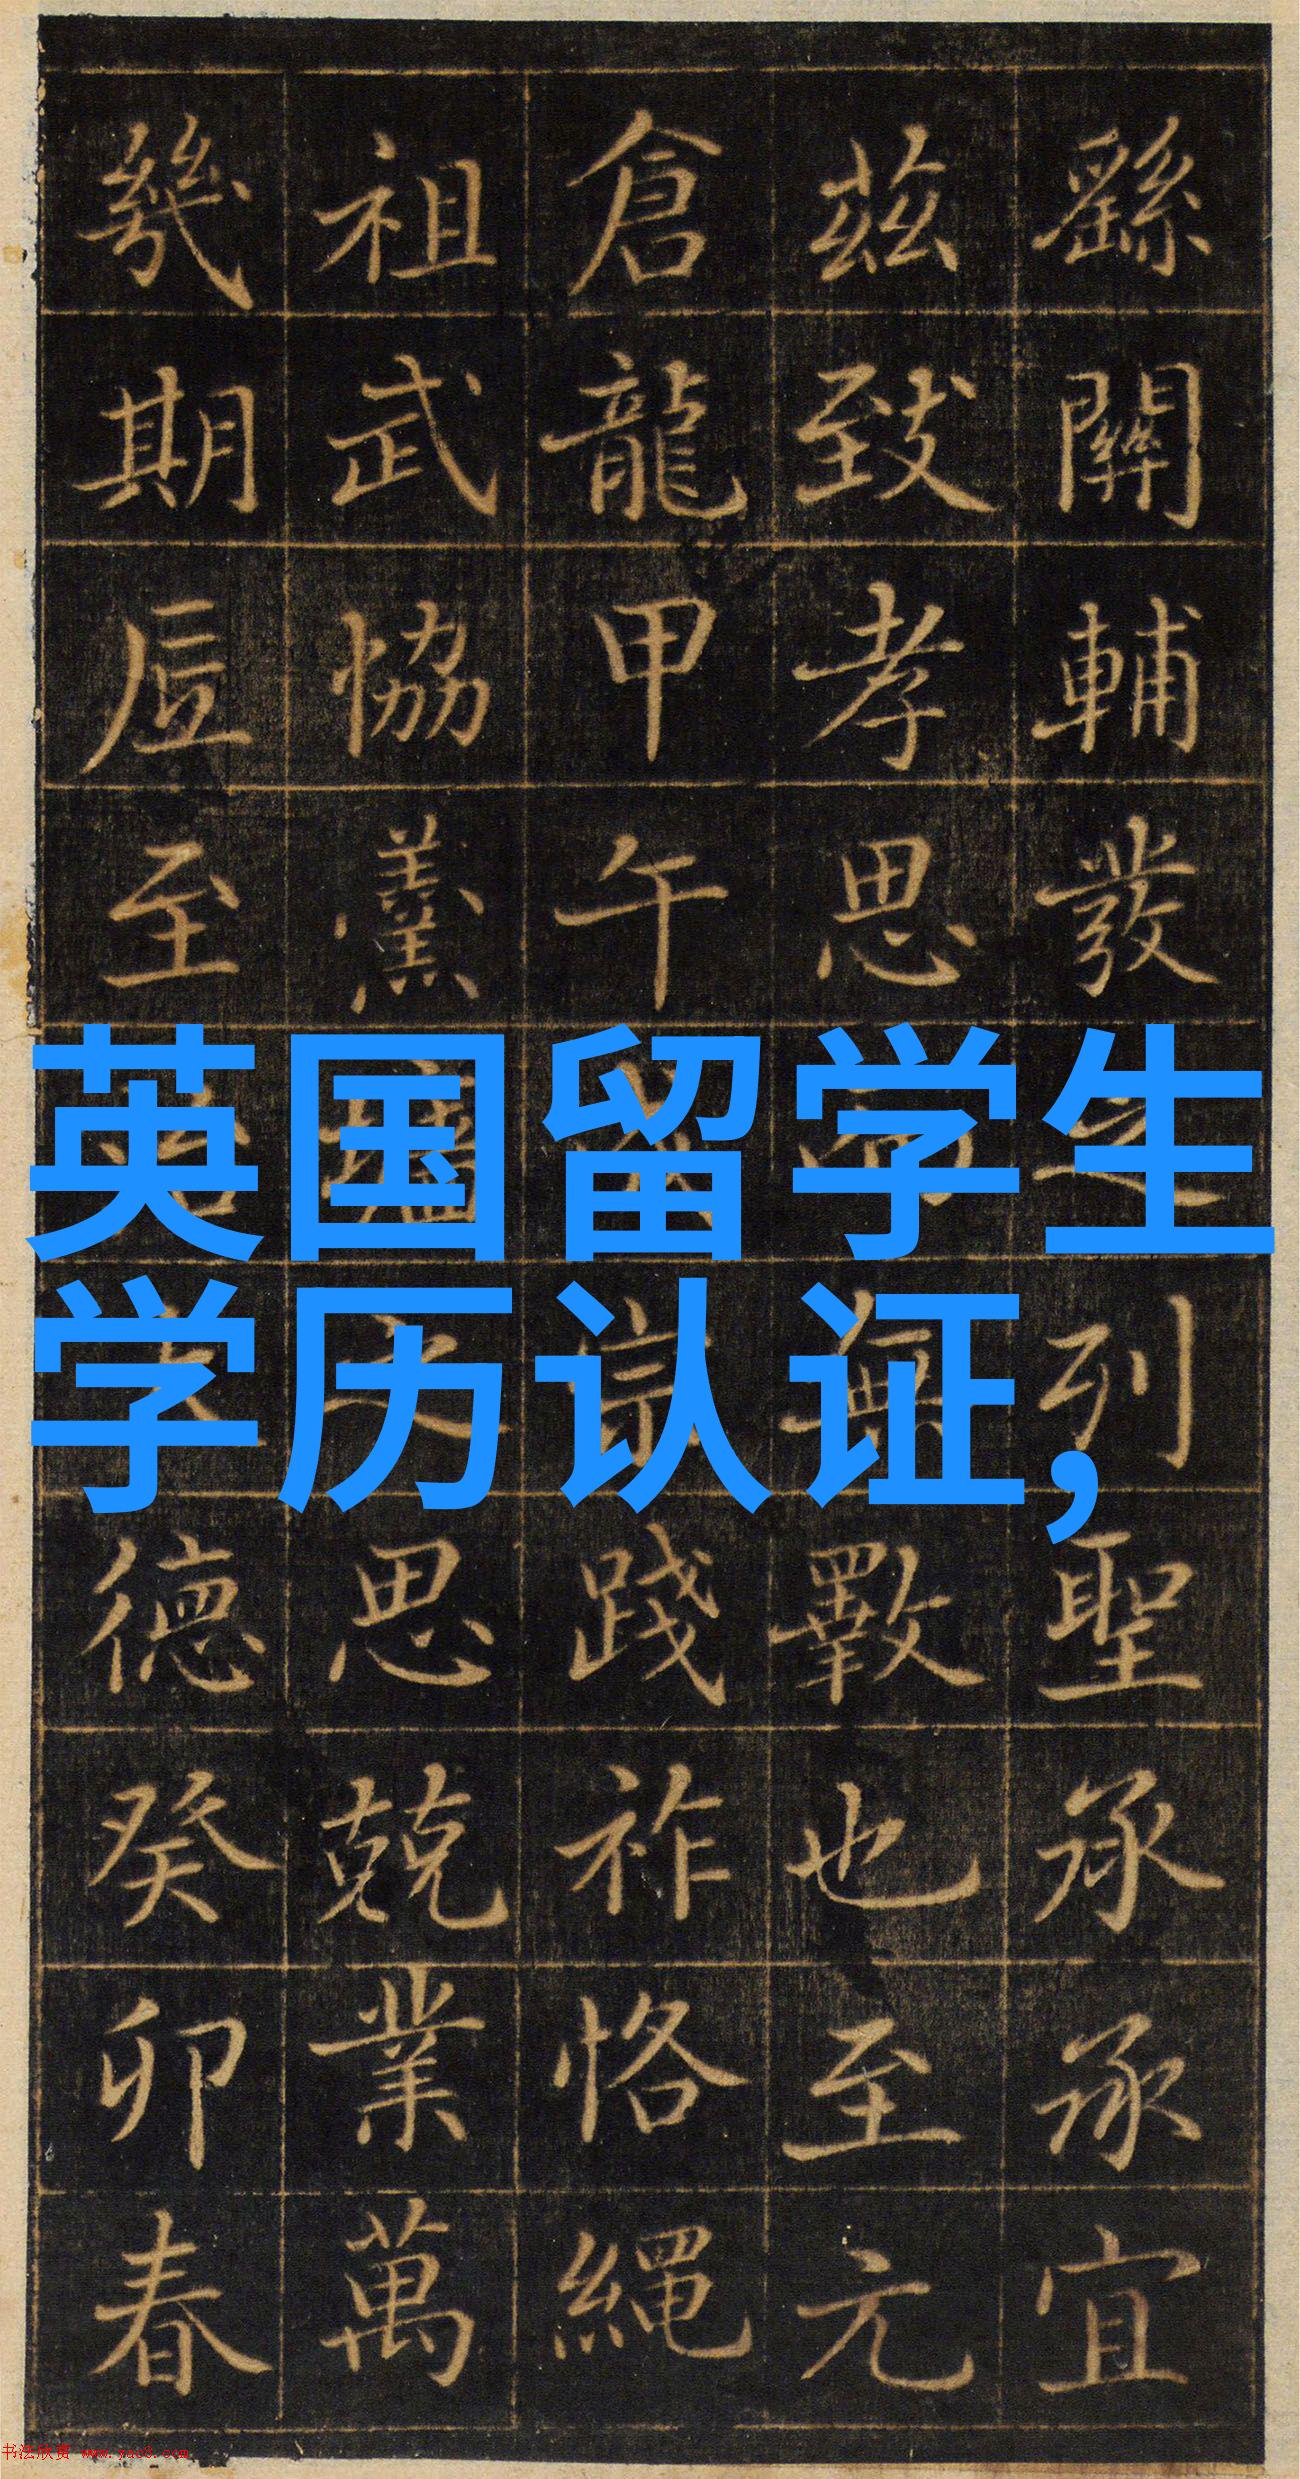 繇關輔發之列聖承承宜
茲致孝思無斁也至元
倉龍甲午宗踐祚恪繩
祖武協羹墻之思兢業萬
幾期至治德癸卯春
英国留学生
学历认证,
书法欣赏 www.yac8.com